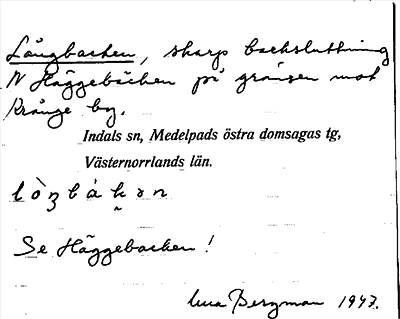 Långbacken, skarp backsluttning
N Häggebäcken på gränsen mot
Krånge by.
Indals sn, Medelpads östra domsagas tg,
Västernorrlands län.
Se Häggebacken!
Bergman 1947.